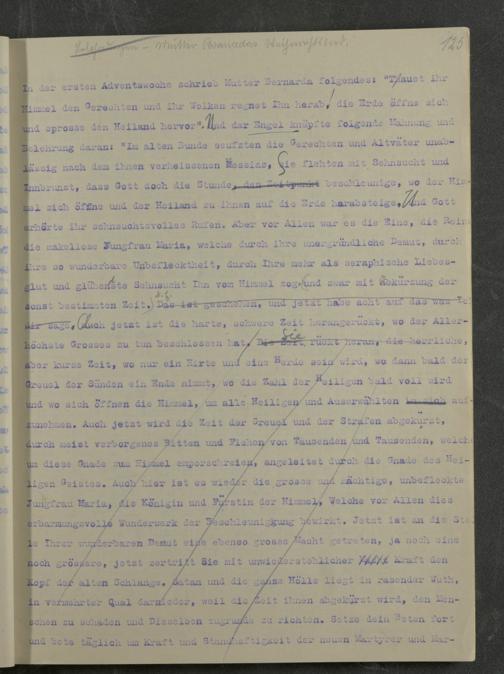 Mutter Bernardas Weihnachtslied. 125
In der ersten Adventswoche schrieb Mutter Bernarda folgendes: "Tauet ihr
Himmel den Gerechten und ihr Wolken regnet Ihn herab, die Erde öffne sich
und sprosse den Heiland hervor". Und der Engel knüpfte folgende Mahnung und
Belehrung daran: "Im alten Bunde seufzten die Gerechten und Altväter unab-
lässig nach dem ihnen verheissenen Messias, Sie flehten mit Sehnsucht und
Innbrunst, dass Gott doch die Stunde, den Zeitpunkt beschleunige, wo der Him-
mel sich öffne und der Heiland zu ihnen auf die Erde herabsteige. Und Gott
erhörte ihr sehnsuchtsvolles Rufen. Aber vor Allen war es die Eine, die Reine
die makellose Jungfrau Maria, welche durch ihre unergründliche Demut, durch
ihre so wunderbare Unbeflecktheit, durch Ihre mehr als seraphische Liebes-
glut und glühenste Sehnsucht Ihn vom Himmel zog, und zwar mit Abkürzung der
sonst bestimmten Zeit. Das ist geschehen, und jetzt habe acht auf das was
dir sage, Auch jetzt ist die harte, schwere Zeit herangerückt, wo der Aller-
höchste Grosses zu tun beschlossen hat. Sie rückt heran, die herrliche,
aber kurze Zeit, wo nur ein Hirte und eine Herde sein wird, wo dann bald der
Greuel der Sünden ein Ende nimmt, wo die Zahl der Heiligen bald voll wird
und wo sich öffnen die Himmel, um alle Heiligen und Auserwählten in sich auf-
zunehmen. Auch jetzt wird die Zeit der Greuel und der Strafen abgekürzt,
durch meist verborgenes Bitten und Flehen von Tausenden und Tausenden, welche
um diese Gnade zum Himmel emporschreien, angeleitet durch die Gnade des Hei-
ligen Geistes. Auch hier ist es wieder die grosse und mächtige, unbefleckte
Jungfrau Maria, die Königin und Fürstin der Himmel, Welche vor Allen dies
erbarmungsvolle Wunderwerk der Beschleunigkung bewirkt. Jetzt ist an die Stel
le Ihrer wunderbaren Demut eine ebenso grosse Macht getreten, ja noch eine
noch grössere, jetzt zertritt Sie mit unwiderstehlicher Kraft den
Kopf der alten Schlange. Satan und die ganze Hölle liegt in rasender Wuth,
in vermehrter Qual darnieder, weil die Zeit ihnen abgekürzt wird, den Men-
schen zu schaden und Dieselben zugrunde zu richten. Setze dein Beten fort
und bete täglich um Kraft und Standhaftigkeit der neuen Martyrer und Mar-